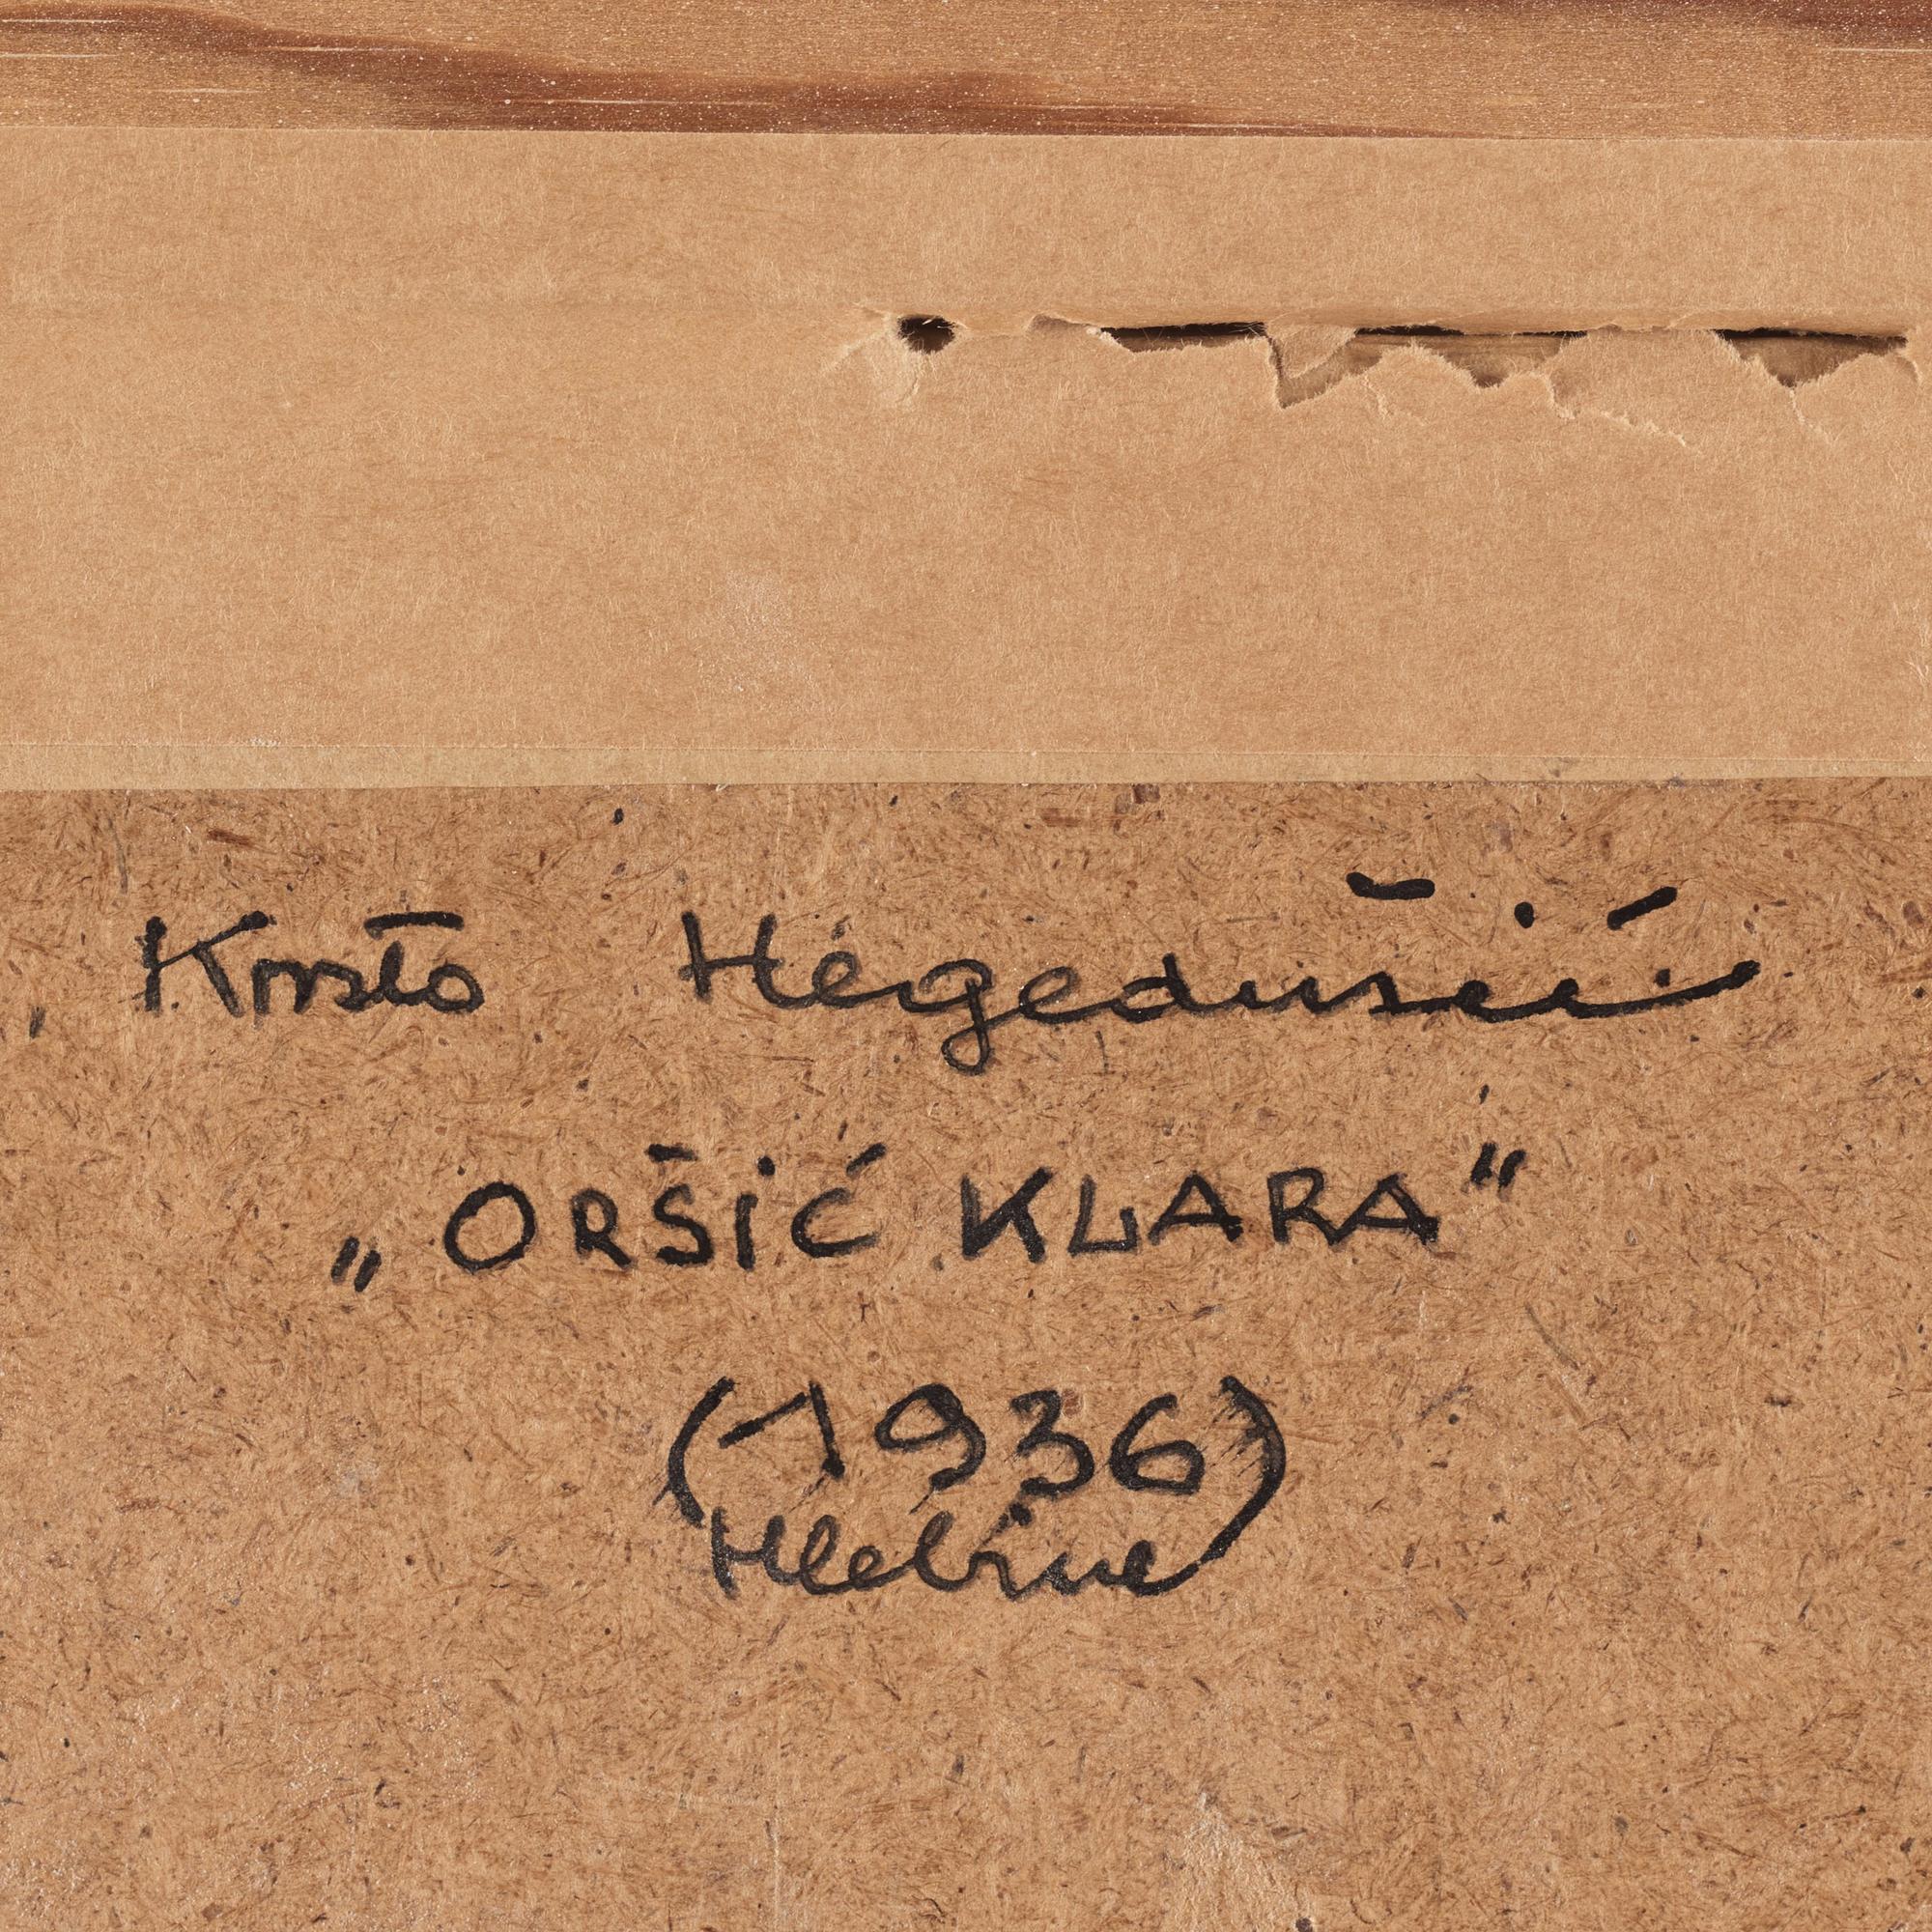 Krsto Hegedušić
„ORŠIĆ KLARA"
(1936
Hlebine)